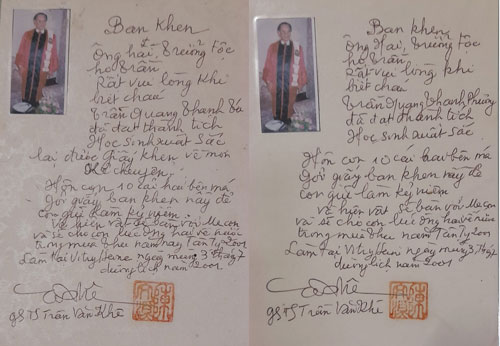 Ban Khen
Ông hai, Trưởng tộc
họ Trần
Rất vui lòng khi
biết cháu
Trần Quang Thanh Tú
đã đạt thành tích
Học Sinh Xuất Sắc
lại được giấy khen về môn
Kể chuyện.
Hôn con 10 cái hai bên má
Gởi giấy ban khen này để
con giữ làm kỷ niệm
về hiện vật sẽ bàn với Mẹ con
và sẽ cho con lúc ông hai về nước
trong mùa thu năm nay Tân Tỵ 2001
Làm tại Vitry/Seine ngày mùng 3 tháng 7
dương lịch năm 2001.
GSTS Trần Văn Khê
Ban khen
Ông Hai, Trưởng tộc
họ Trần
Rất vui lòng khi
biết cháu
Trần Quang Thanh Phong
đã đạt thành tích
Học Sinh Xuất Sắc
Hôn con 10 cái hai bên má
Gởi giấy ban khen này để
con giữ làm kỷ niệm
về hiện vật sẽ bàn với Mẹ con
và sẽ cho con lúc ông hai về nước
trong mùa thu năm Tân Tỵ 2001
Làm tại Vitry/Seine ngày mùng 3 tháng 7
dương lịch năm 2001
GSTS Trần Văn Khê